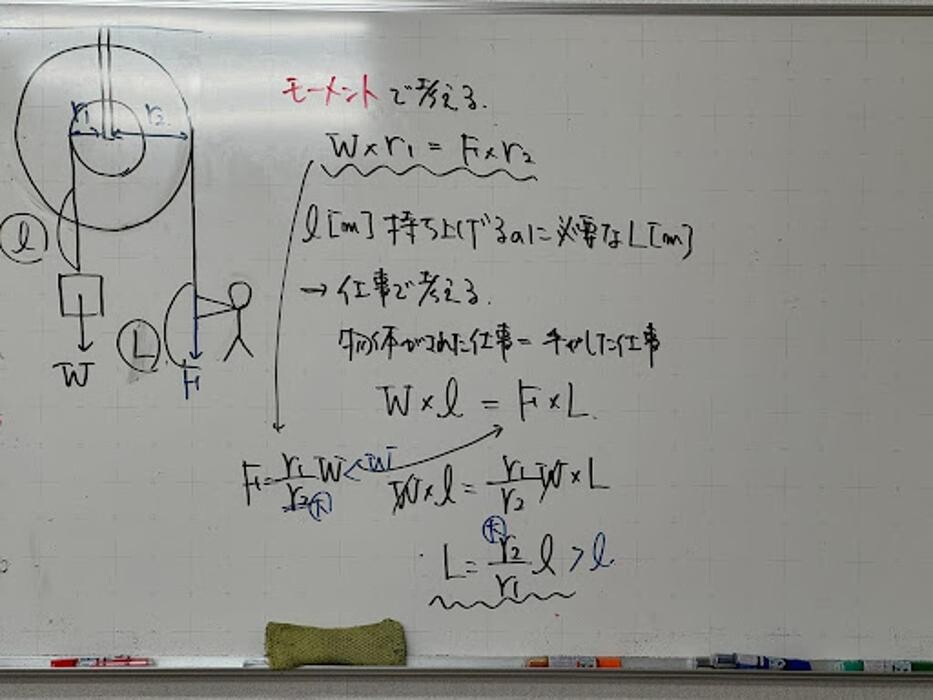 r₁ r₂
ℓ
L
W
F
モーメントで考える.
W×r₁ = F×r₂
ℓ[m] 持ち上げるのに必要なL[m]
→ 仕事で考える.
物体がされた仕事 = 手がした仕事
W×ℓ = F×L.
F=r₁/r₂ W < W
大
W×ℓ = r₁/r₂ W×L
大
L = r₂/r₁ ℓ > ℓ